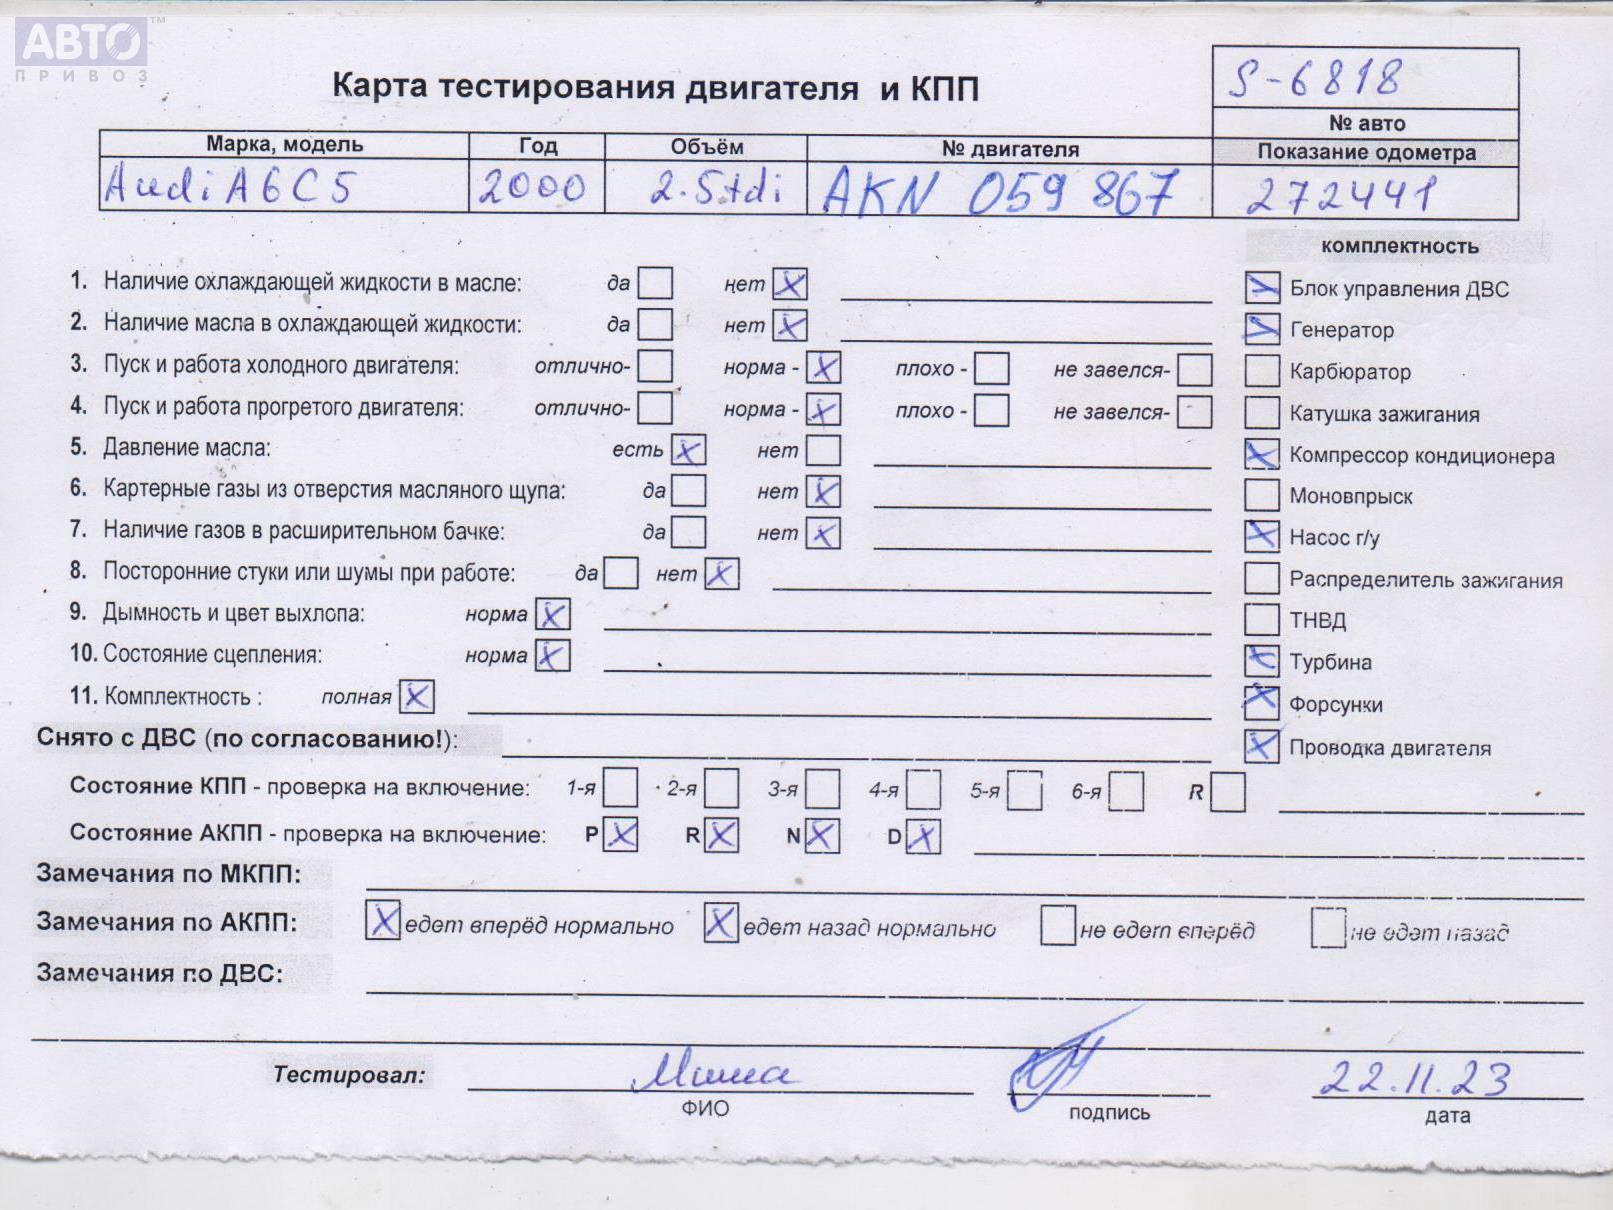 АВТО™
ПРИВОЗ
Карта тестирования двигателя и КПП
S-6818
№ авто
Марка, модель Год Объём № двигателя Показание одометра
Audi A6C5 2000 2.5tdi AKN 059 867 272441
комплектность
1. Наличие охлаждающей жидкости в масле: да нет
Блок управления ДВС
2. Наличие масла в охлаждающей жидкости: да нет
Генератор
3. Пуск и работа холодного двигателя: отлично- норма - плохо - не завелся-
Карбюратор
4. Пуск и работа прогретого двигателя: отлично- норма - плохо - не завелся-
Катушка зажигания
5. Давление масла: есть нет
Компрессор кондиционера
6. Картерные газы из отверстия масляного щупа: да нет
Моновпрыск
7. Наличие газов в расширительном бачке: да нет
Насос г/у
8. Посторонние стуки или шумы при работе: да нет
Распределитель зажигания
9. Дымность и цвет выхлопа: норма
ТНВД
10. Состояние сцепления: норма
Турбина
11. Комплектность : полная
Форсунки
Снято с ДВС (по согласованию!):
Проводка двигателя
Состояние КПП - проверка на включение: 1-я 2-я 3-я 4-я 5-я 6-я R
Состояние АКПП - проверка на включение: P R N D
Замечания по МКПП:
Замечания по АКПП: едет вперёд нормально едет назад нормально не едет вперёд не едет назад
Замечания по ДВС:
Тестировал: Миша 22.11.23
ФИО подпись дата